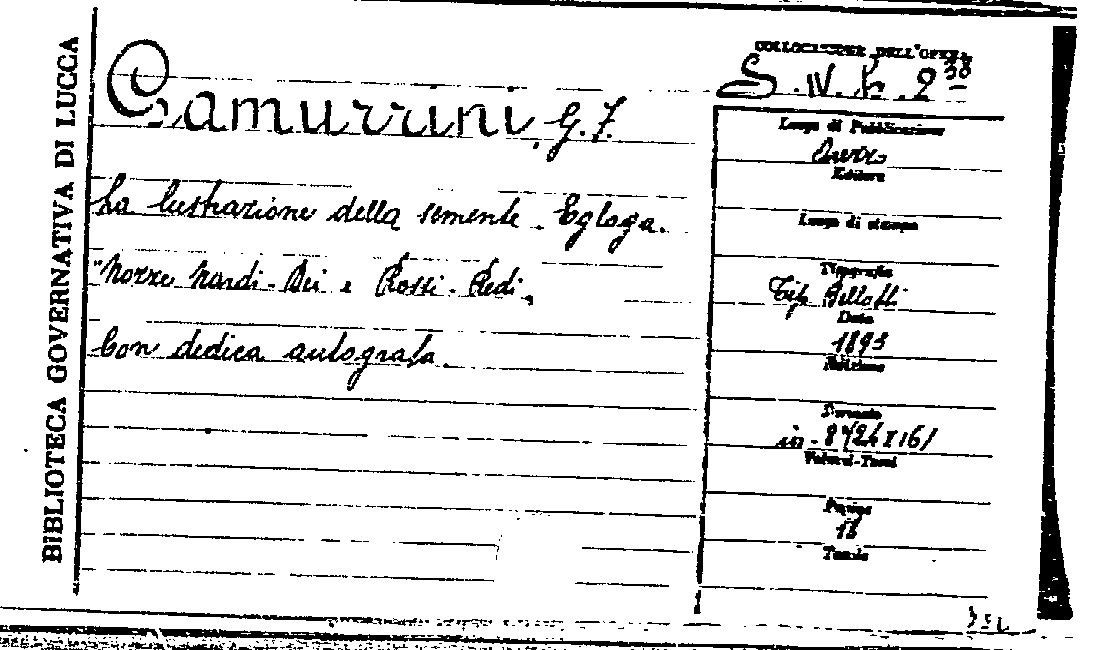 BIBLIOTECA GOVERNATIVA DI LUCCA
Gamurrini, G. F.
La lustrazione della semente. Egloga.
"Nozze Nardi-Dei e Rossi-Redi"
Con dedica autografa.
COLLOCAZIONE DELL'OPERA
S. IV. 2 38
Luogo di Pubblicazione
Arezzo
Editore
Luogo di stampa
Tipografia
Tip. Bellotti
Data
1893
Edizione
Formato
in-8º/24x16/
Volumi-Tomi
Pagine
18
Tavole